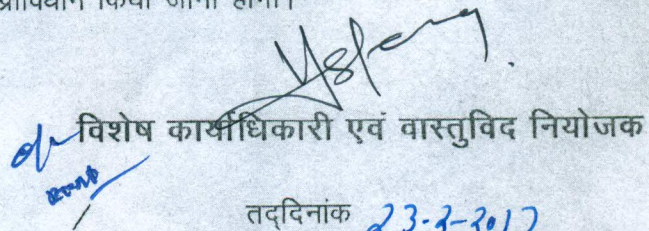 प्राविधान किया जाना होगा।
विशेष कार्याधिकारी एवं वास्तुविद नियोजक
तद्दिनांक 23-2-2017